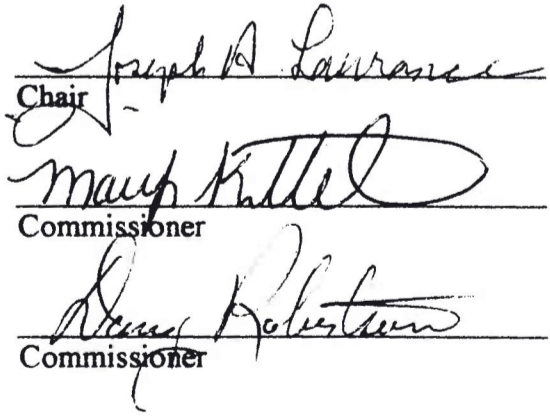 Joseph A Lawrance
Chair
Mary Kittel
Commissioner
Doug Robertson
Commissioner